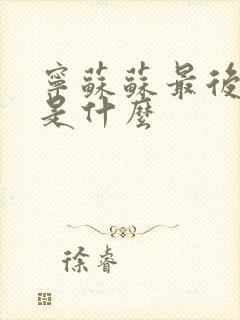 寧蘇蘇最後
是什麼
徐睿